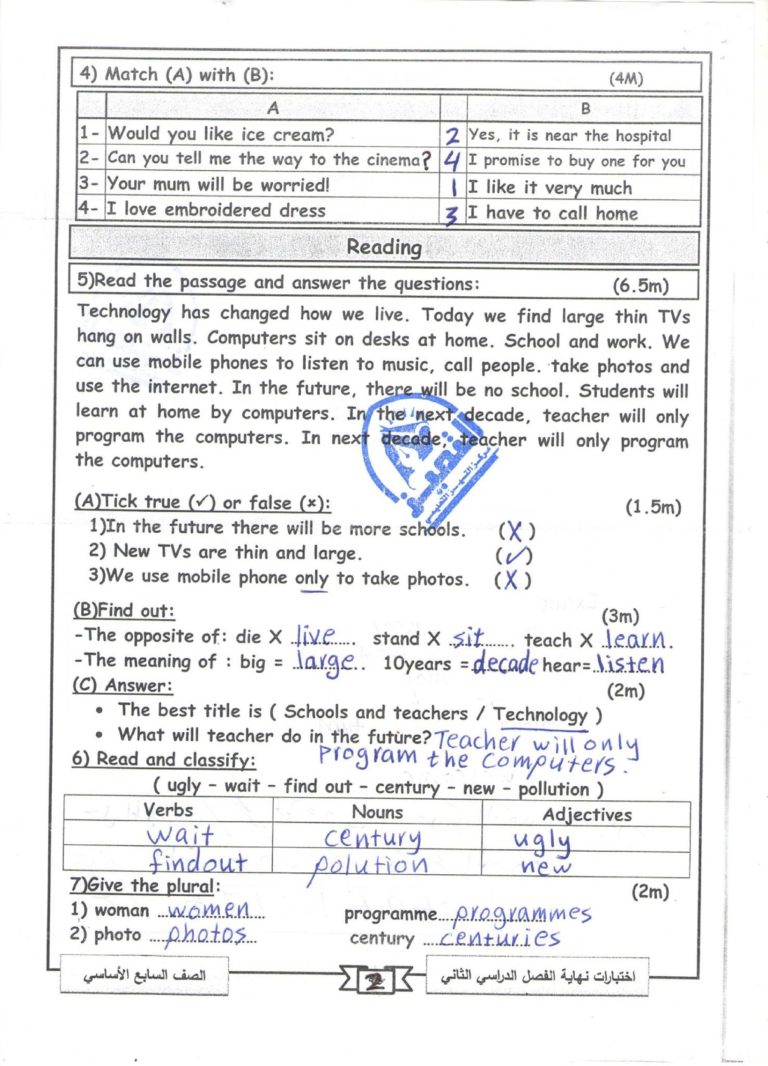 4) Match (A) with (B): (4M)
A B
1- Would you like ice cream? 2 Yes, it is near the hospital
2- Can you tell me the way to the cinema? 4 I promise to buy one for you
3- Your mum will be worried! 1 I like it very much
4- I love embroidered dress 3 I have to call home
Reading
5)Read the passage and answer the questions: (6.5m)
Technology has changed how we live. Today we find large thin TVs
hang on walls. Computers sit on desks at home. School and work. We
can use mobile phones to listen to music, call people. take photos and
use the internet. In the future, there will be no school. Students will
learn at home by computers. In the next decade, teacher will only
program the computers. In next decade, teacher will only program
the computers.
(A)Tick true (✓) or false (×):  (1.5m)
1)In the future there will be more schools. (X)
2) New TVs are thin and large. (✓)
3)We use mobile phone only to take photos. (X)
(B)Find out: (3m)
-The opposite of: die X live..... stand X sit....... teach X learn.
-The meaning of : big = large.. 10years =decade hear=listen
(C) Answer: (2m)
• The best title is ( Schools and teachers / Technology )
• What will teacher do in the future? Teacher will only
program the computers.
6) Read and classify:
( ugly – wait – find out – century – new – pollution )
Verbs Nouns Adjectives
wait century ugly
findout polution new
7)Give the plural: (2m)
1) woman ...women.... programme...programmes
2) photo ....photos.. century ....centuries
الصف السابع الأساسي 2 اختبارات نهاية الفصل الدراسي الثاني